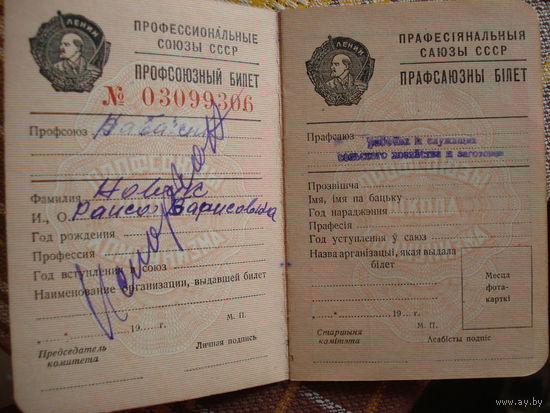 ЛЕНИН
ПРОФЕССИОНАЛЬНЫЕ
СОЮЗЫ СССР
ПРОФСОЮЗНЫЙ БИЛЕТ
№ 03099306
Профсоюз
Фамилия Новик
И., О. Раиса Барисовна
Год рождения
Профессия
Год вступления в союз
Наименование организации, выдавшей билет
19......г.
М. П.
Председатель
комитета
Личная подпись
ЛЕНИН
ПРАФЕСІЯНАЛЬНЫЯ
САЮЗЫ СССР
ПРАФСАЮЗНЫ БІЛЕТ
Прафсаюз рабочих и служащих
сельского хозяйства и заготовок
Прозвішча
Імя, імя па бацьку
Год нараджэння
Прафесія
Год уступлення ў саюз
Назва арганізацыі, якая выдала
білет
Месца
фота-
карткі
19......г.
М. П.
Старшыня
камітэта
Асабісты подпіс
www.ay.by